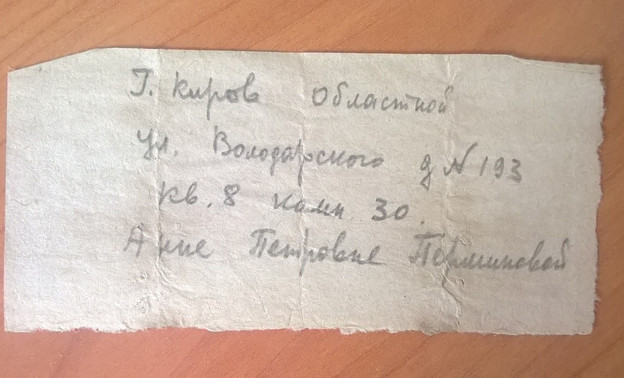 Г. Киров Областной
ул. Володарского д N 193
кв. 8 комн. 30.
Анне Петровне Перминовой